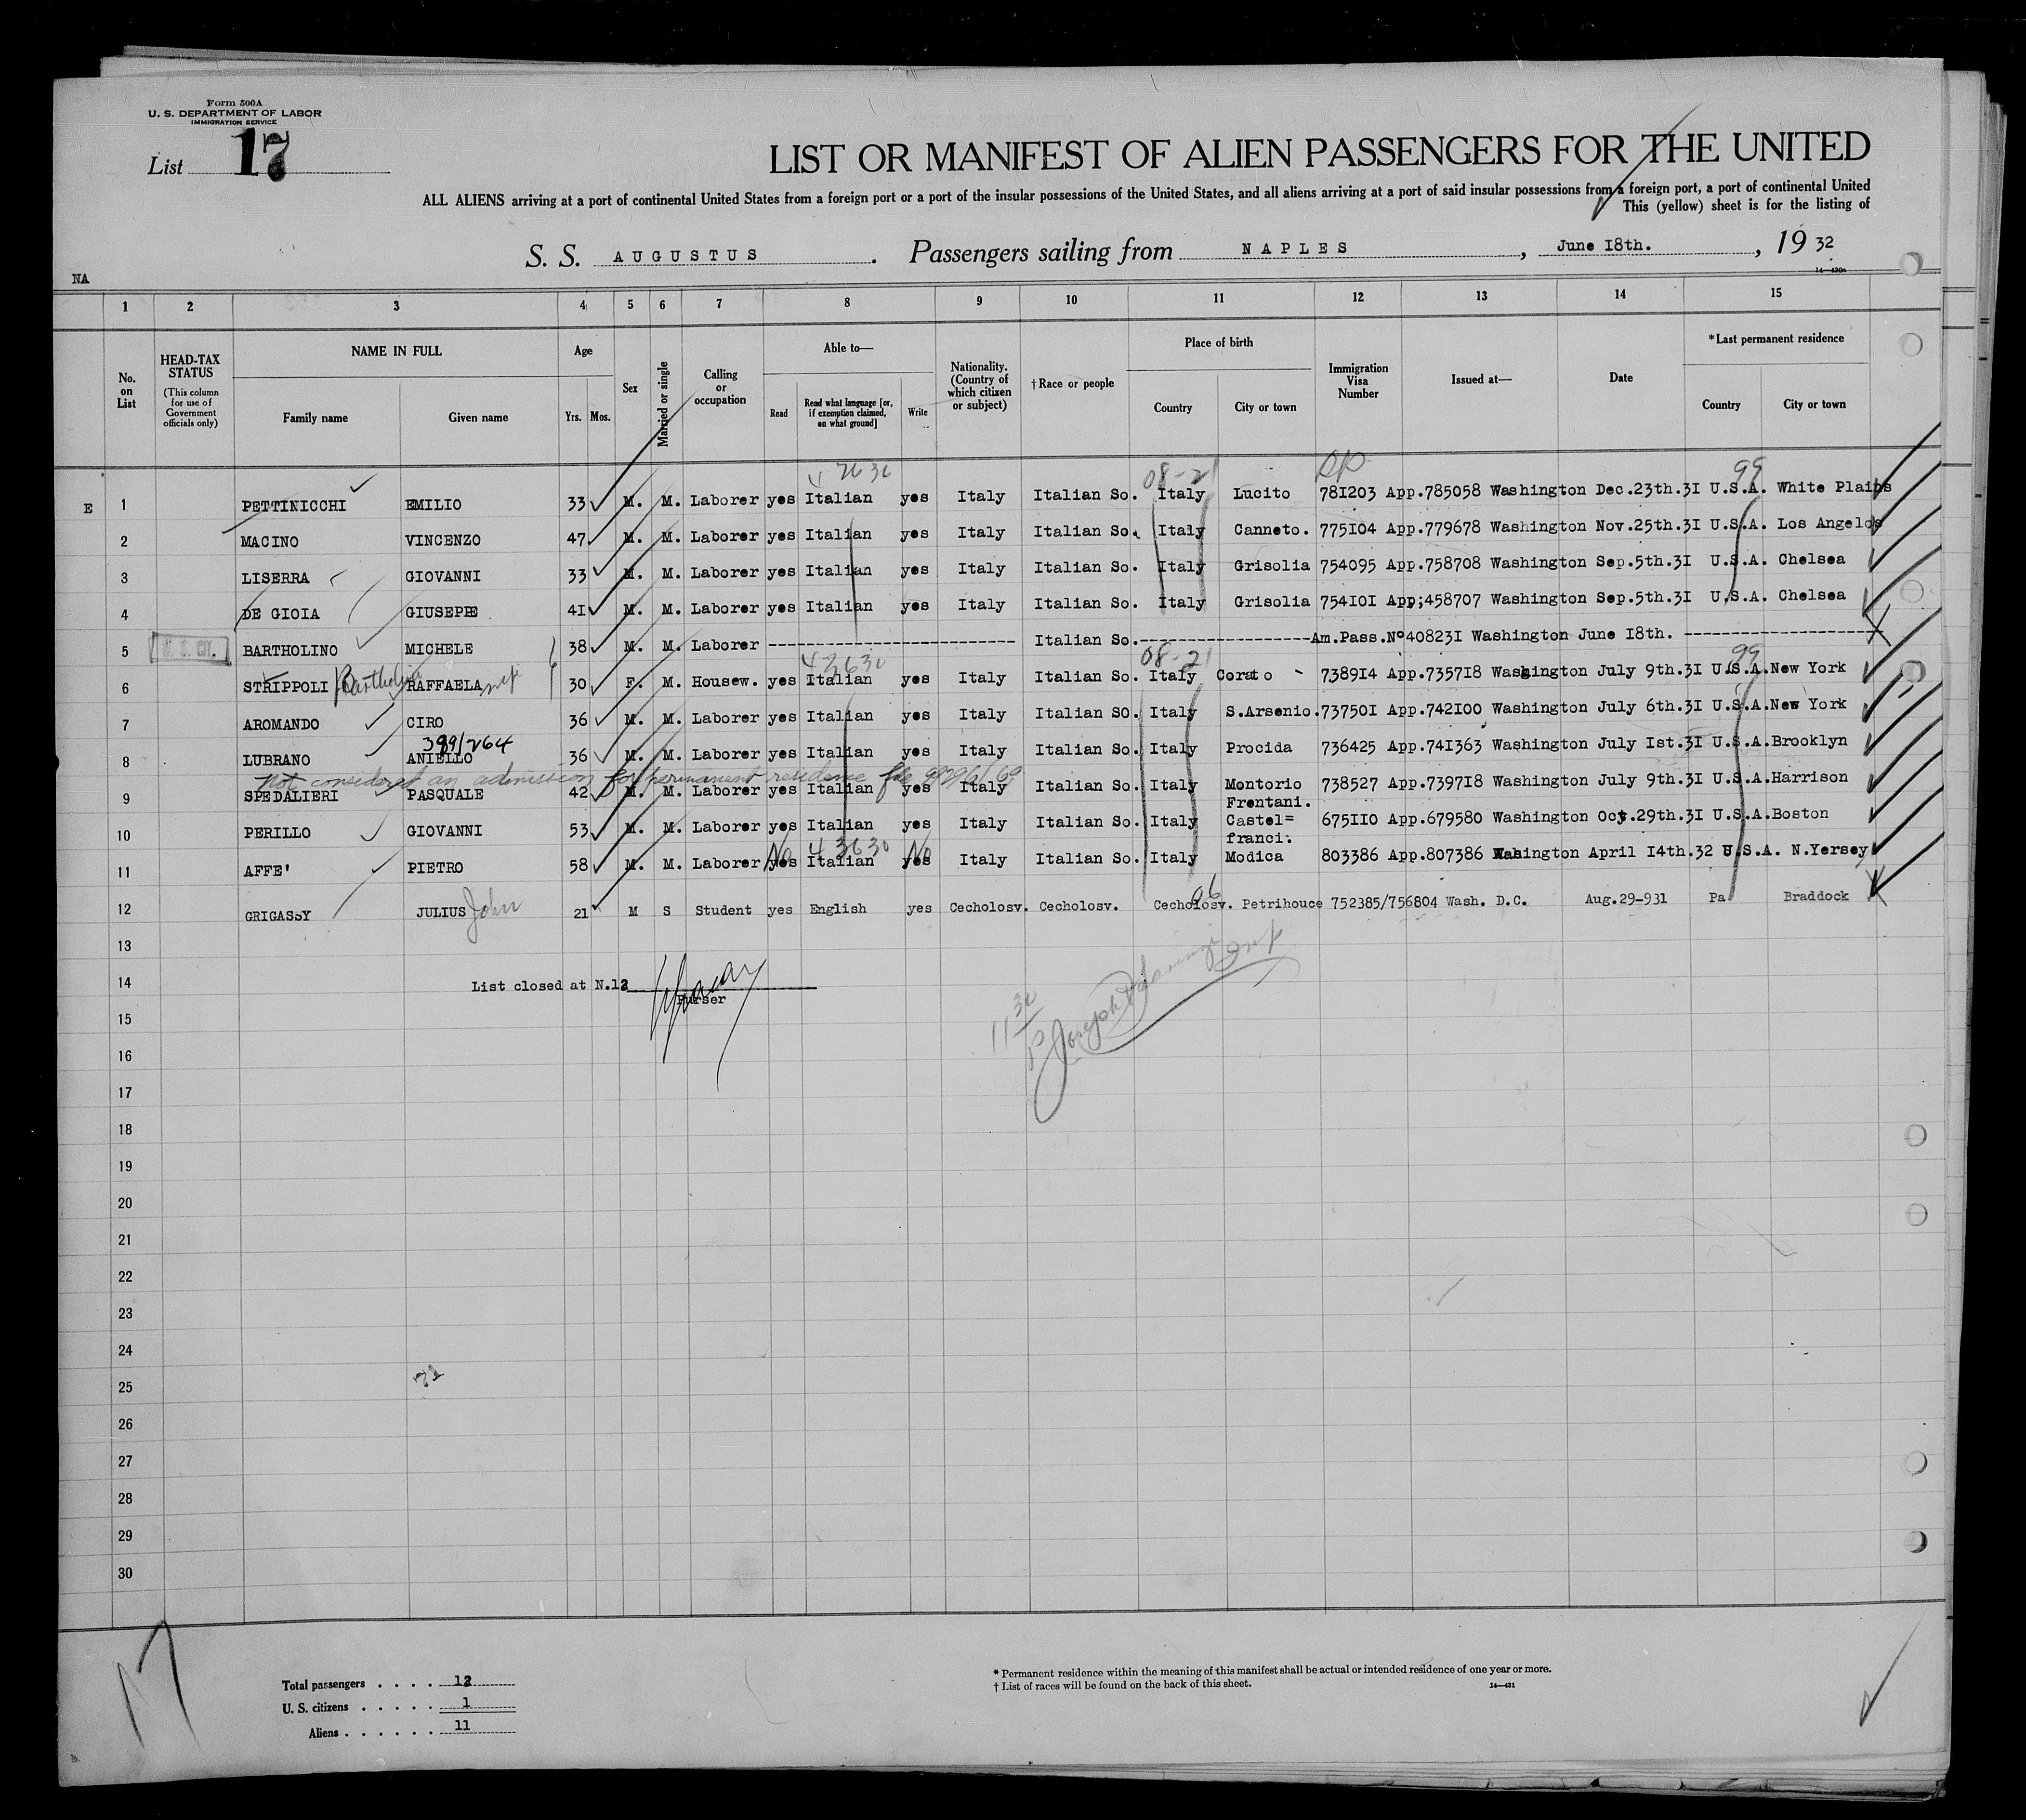 Form 500A
U. S. DEPARTMENT OF LABOR
IMMIGRATION SERVICE
List 17
LIST OR MANIFEST OF ALIEN PASSENGERS FOR THE UNITED
ALL ALIENS arriving at a port of continental United States from a foreign port or a port of the insular possessions of the United States, and all aliens arriving at a port of said insular possessions from a foreign port, a port of continental United
This (yellow) sheet is for the listing of
S. S. AUGUSTUS. Passengers sailing from NAPLES, June I8th., 19 32
14—430a
NA
1 2 3 4 5 6 7 8 9 10 11 12 13 14 15
No. on List
HEAD-TAX STATUS
(This column for use of Government officials only)
NAME IN FULL
Family name Given name
Age
Yrs. Mos.
Sex
Married or single
Calling or occupation
Able to—
Read
Read what language [or, if exemption claimed, on what ground]
Write
Nationality. (Country of which citizen or subject)
† Race or people
Place of birth
Country City or town
Immigration Visa Number
Issued at—
Date
* Last permanent residence
Country City or town
08-21 99
E 1 PETTINICCHI EMILIO 33 M. M. Laborer yes Italian yes Italy Italian So. Italy Lucito 78I203 App.785058 Washington Dec.23th.3I U.S.A. White Plains
2 MACINO VINCENZO 47 M. M. Laborer yes Italian yes Italy Italian So. Italy Canneto. 775I04 App.779678 Washington Nov.25th.3I U.S.A. Los Angelos
3 LISERRA GIOVANNI 33 M. M. Laborer yes Italian yes Italy Italian So. Italy Grisolia 754095 App.758708 Washington Sep.5th.3I U.S.A. Chelsea
4 DE GIOIA GIUSEPPE 4I M. M. Laborer yes Italian yes Italy Italian So. Italy Grisolia 754I0I App;458707 Washington Sep.5th.3I U.S.A. Chelsea
5 U. S. CIT. BARTHOLINO MICHELE 38 M. M. Laborer ---------- Italian So. ---------- Am.Pass.Nº40823I Washington June I8th. ----------
43630 08-21 99
6 STRIPPOLI RAFFAELA wife 30 F. M. Housew. yes Italian yes Italy Italian So. Italy Corato - 7389I4 App.7357I8 Washington July 9th.3I U.S.A. New York
7 AROMANDO CIRO 36 M. M. Laborer yes Italian yes Italy Italian SO. Italy S.Arsenio. 73750I App.742I00 Washington July 6th.3I U.S.A. New York
389/264
8 LUBRANO ANIELLO 36 M. M. Laborer yes Italian yes Italy Italian So. Italy Procida 736425 App.74I363 Washington July Ist.3I U.S.A. Brooklyn
Not considered an admission for permanent residence file
9 SPEDALIERI PASQUALE 42 M. M. Laborer yes Italian yes Italy Italian So. Italy Montorio Frentani. 738527 App.7397I8 Washington July 9th.3I U.S.A. Harrison
10 PERILLO GIOVANNI 53 M. M. Laborer yes Italian yes Italy Italian So. Italy Castel= franci. 675II0 App.679580 Washington Oct.29th.3I U.S.A. Boston
No 43630 No
11 AFFE' PIETRO 58 M. M. Laborer yes Italian yes Italy Italian So. Italy Modica 803386 App.807386 Washington April I4th.32 U.S.A. N.Yersey
06
12 GRIGASSY JULIUS John 21 M S Student yes English yes Cecholosv. Cecholosv. Cecholosv. Petrihouce 752385/756804 Wash. D.C. Aug.29-931 Pa Braddock
13
14 List closed at N.12
Purser
15
16
17
18
19
20
21
22
23
24
25
26
27
28
29
30
Total passengers . . . . 12
U. S. citizens . . . . . 1
Aliens . . . . . . 11
* Permanent residence within the meaning of this manifest shall be actual or intended residence of one year or more.
† List of races will be found on the back of this sheet.
14—431